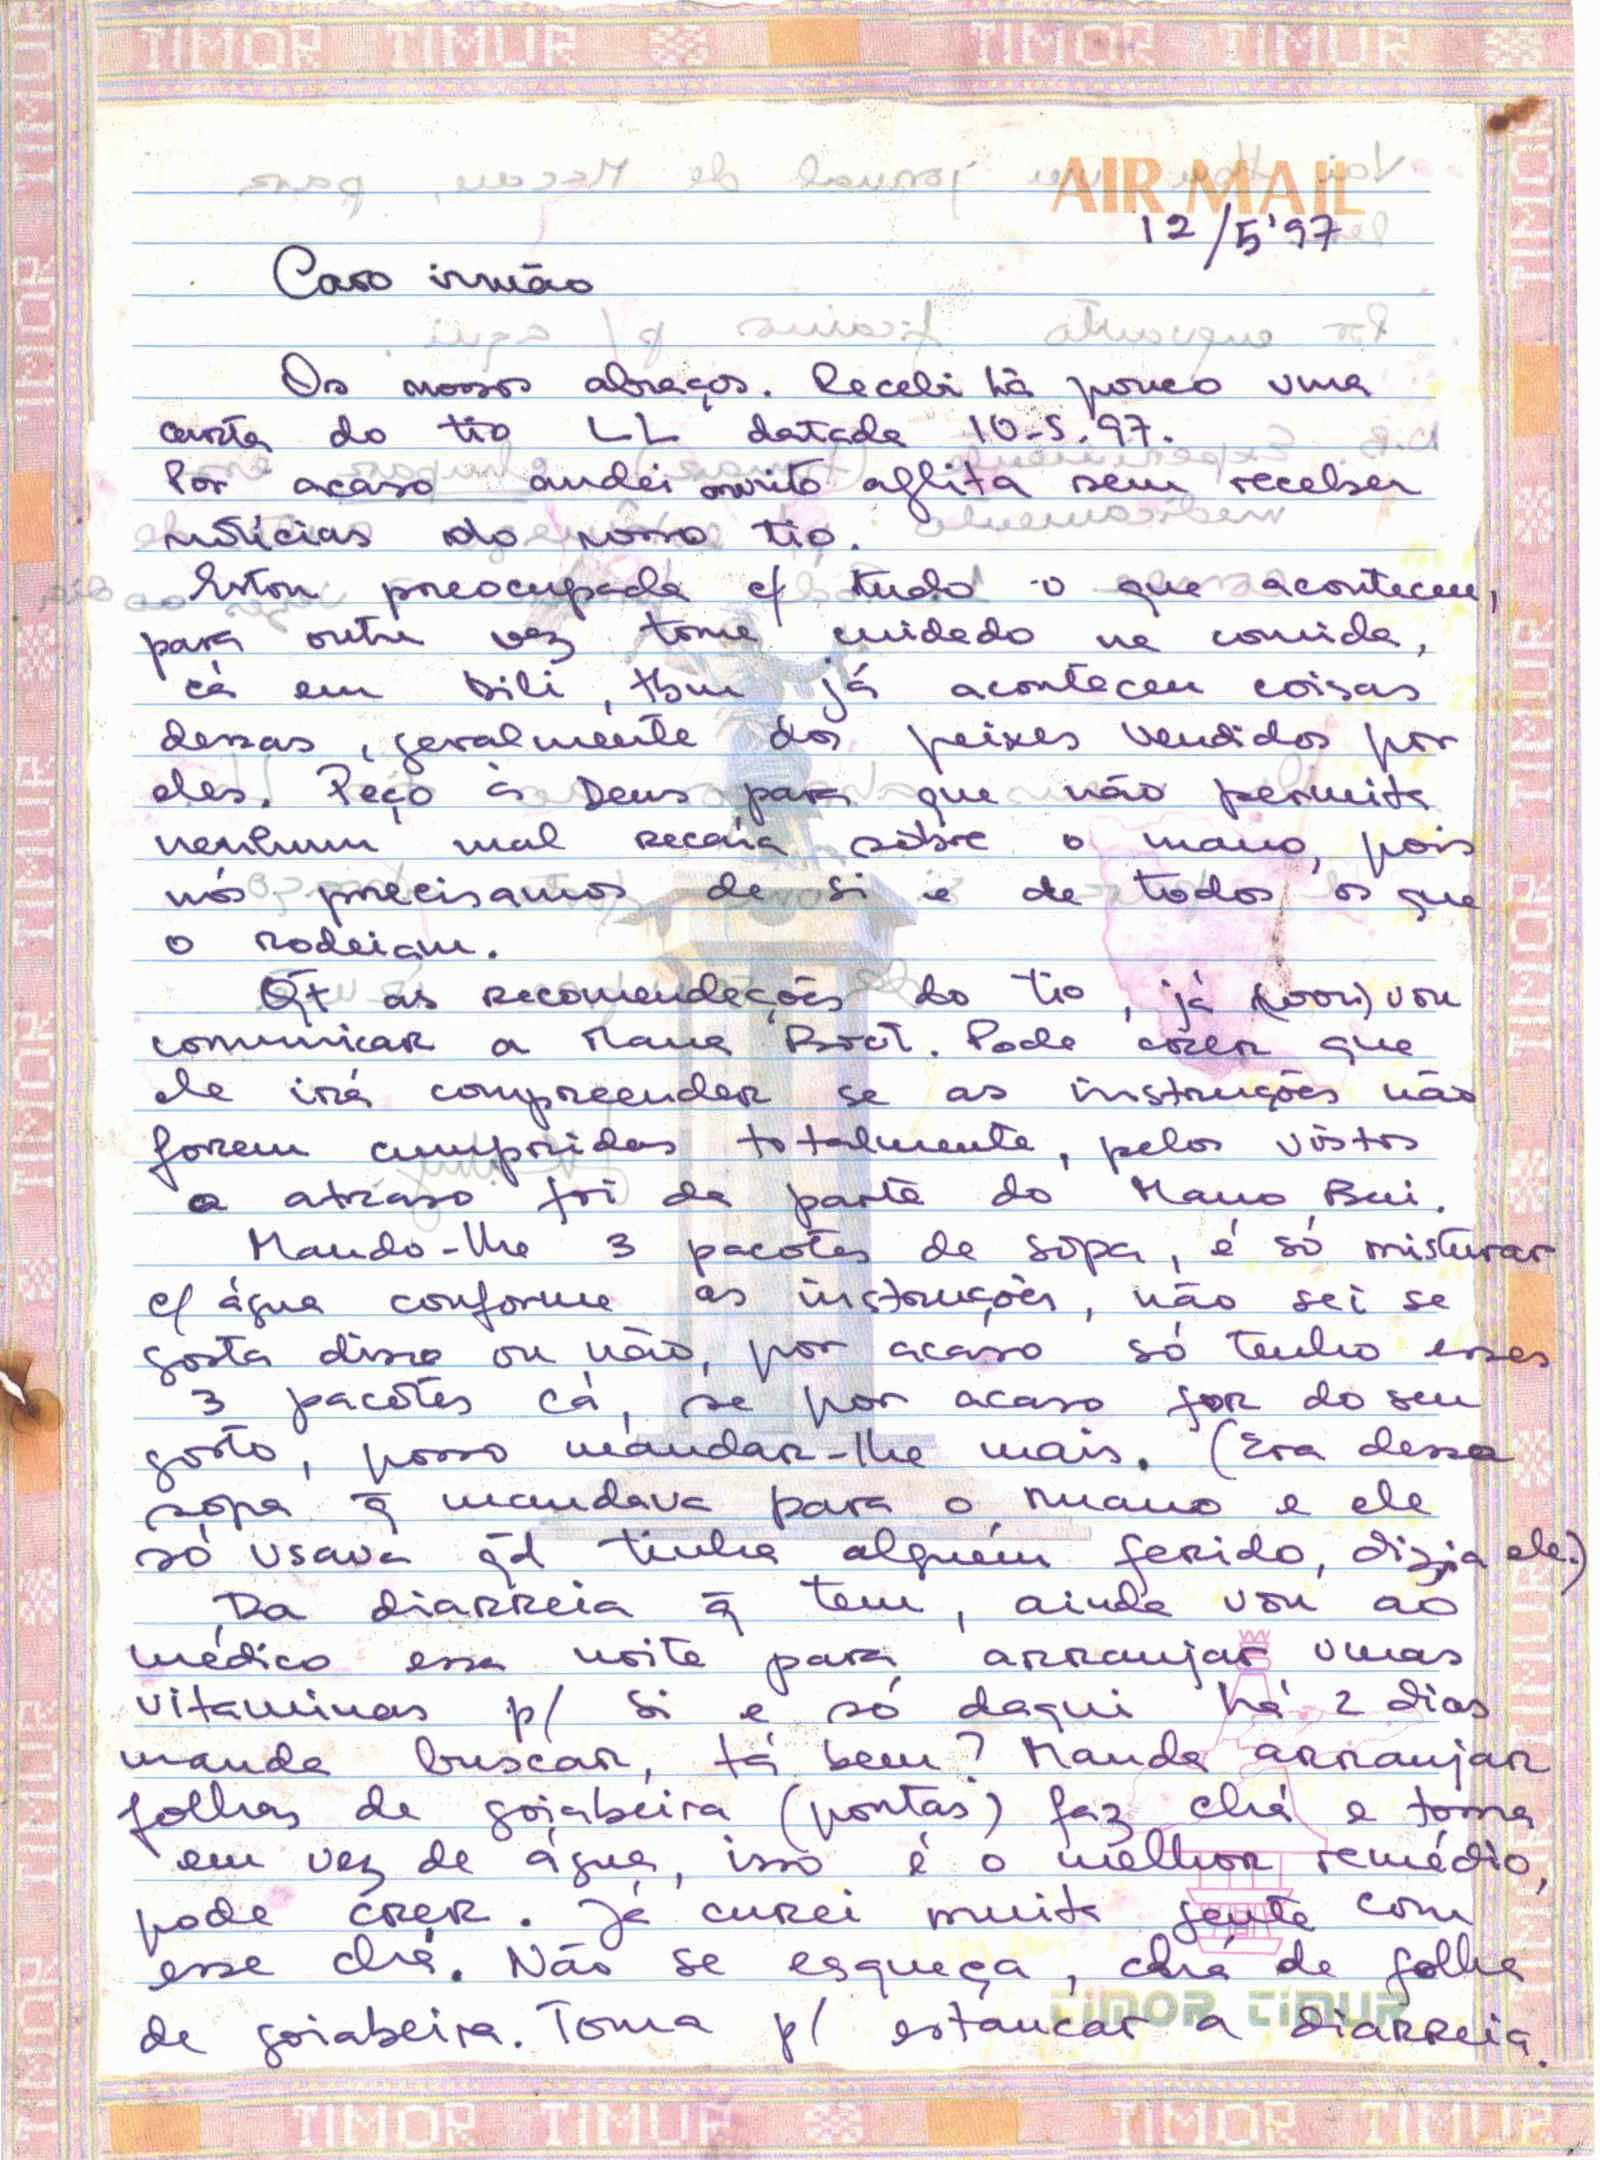 TIMOR TIMUR TIMOR TIMUR
AIR MAIL
12/5'97
Caro irmão
Os nossos abraços. Recebi há pouco uma
carta do tio LL datada 10-5.97.
Por acaso andei muito aflita sem receber
notícias do nosso tio.
Estou preocupada c/ tudo o que aconteceu,
para outra vez tome cuidado na comida,
cá em Dili, tbm já aconteceu coisas
dessas, geralmente dos peixes vendidos por
eles. Peço à Deus para que não permita
nenhum mal recaía sôbre o mano, pois
nós precisamos de si e de todos os que
o rodeiam.
Qt as recomendações do tio, já vou
comunicar a Mana. Pode crer que
ele irá compreender se as instruções não
forem cumpridas totalmente, pelos vistos
o atraso foi da parte do Mano Bui.
Mando-lhe 3 pacotes de sopa, é só misturar
c/ água conforme as instruções, não sei se
gosta disso ou não, por acaso só tenho esses
3 pacotes cá, se por acaso for do seu
gosto, posso mandar-lhe mais. (Era dessa
sopa q̃ mandava para o mano e ele
só usava qd tinha alguém ferido, dizia ele.)
Da diarreia q̃ tem, ainda vou ao
médico essa noite para arranjar umas
vitaminas p/ si e só daqui há 2 dias
manda buscar, tá bem? Manda arranjar
folhas de goiabeira (pontas) faz chá e toma
em vez de água, isso é o melhor remédio,
pode crer. Já curei muita gente com
esse chá. Não se esqueça, chá de folha
de goiabeira. Toma p/ estancar a diarreia.
TIMOR TIMUR
TIMOR TIMUR TIMOR TIMUR